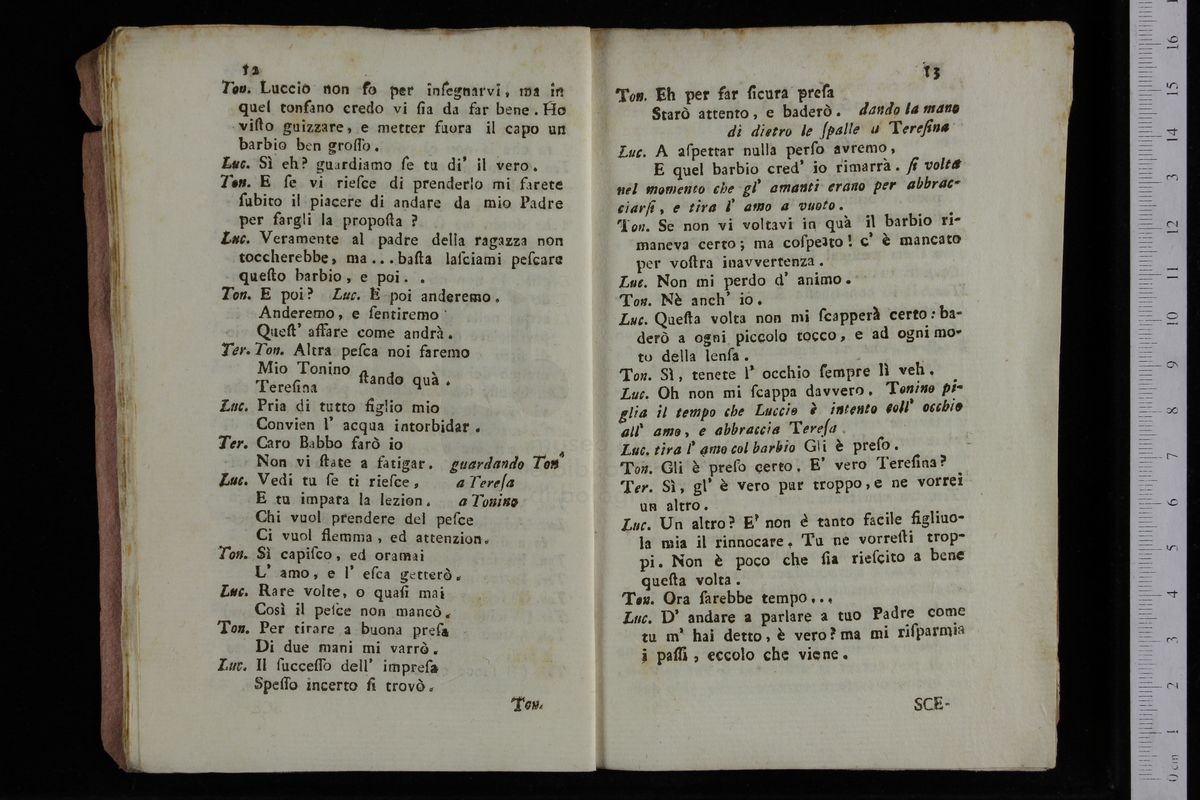 12
Ton. Luccio non ſo per inſegnarvi, ma in
quel tonfano credo vi ſia da far bene. Ho
viſto guizzare, e metter fuora il capo un
barbio ben groſſo.
Luc. Sì eh? guardiamo ſe tu di' il vero.
Ton. E ſe vi rieſce di prenderlo mi farete
ſubito il piacere di andare da mio Padre
per fargli la propoſta ?
Luc. Veramente al padre della ragazza non
toccherebbe, ma ... baſta laſciami peſcare
queſto barbio, e poi. .
Ton. E poi? Luc. E poi anderemo.
Anderemo, e ſentiremo
Queſt' affare come andrà.
Ter. Ton. Altra peſca noi faremo
Mio Tonino
Tereſina ſtando quà.
Luc. Pria di tutto figlio mio
Convien l' acqua intorbidar.
Ter. Caro Babbo farò io
Non vi ſtate a fatigar. guardando Ton
Luc. Vedi tu ſe ti rieſce, a Tereſa
E tu impara la lezion. a Tonino
Chi vuol prendere del peſce
Ci vuol flemma, ed attenzion.
Ton. Sì capiſco, ed oramai
L' amo, e l' eſca getterò.
Luc. Rare volte, o quaſi mai
Così il peſce non mancò.
Ton. Per tirare a buona preſa
Di due mani mi varrò.
Luc. Il ſucceſſo dell' impreſa
Speſſo incerto ſi trovò.
Ton.
13
Ton. Eh per far ſicura preſa
Starò attento, e baderò. dando la mano
di dietro le ſpalle a Tereſina
Luc. A aſpettar nulla perſo avremo,
E quel barbio cred' io rimarrà. ſi volta
nel momento che gl' amanti erano per abbrac-
ciarſi, e tira l' amo a vuoto.
Ton. Se non vi voltavi in quà il barbio ri-
maneva certo; ma coſpetto! c' è mancato
per voſtra inavvertenza.
Luc. Non mi perdo d' animo.
Ton. Nè anch' io.
Luc. Queſta volta non mi ſcapperà certo: ba-
derò a ogni piccolo tocco, e ad ogni mo-
to della lenſa.
Ton. Sì, tenete l' occhio ſempre lì veh.
Luc. Oh non mi ſcappa davvero. Tonino pi-
glia il tempo che Luccio è intento coll' occhio
all' amo, e abbraccia Tereſa
Luc. tira l' amo col barbio Gli è preſo.
Ton. Gli è preſo certo. E' vero Tereſina?
Ter. Sì, gl' è vero pur troppo, e ne vorrei
un altro.
Luc. Un altro? E' non è tanto facile figliuo-
la mia il rinnocare. Tu ne vorreſti trop-
pi. Non è poco che ſia rieſcito a bene
queſta volta.
Ton. Ora ſarebbe tempo...
Luc. D' andare a parlare a tuo Padre come
tu m' hai detto, è vero? ma mi riſparmia
i paſſi, eccolo che viene.
SCE-
0 cm 1 2 3 4 5 6 7 8 9 10 11 12 13 14 15 16